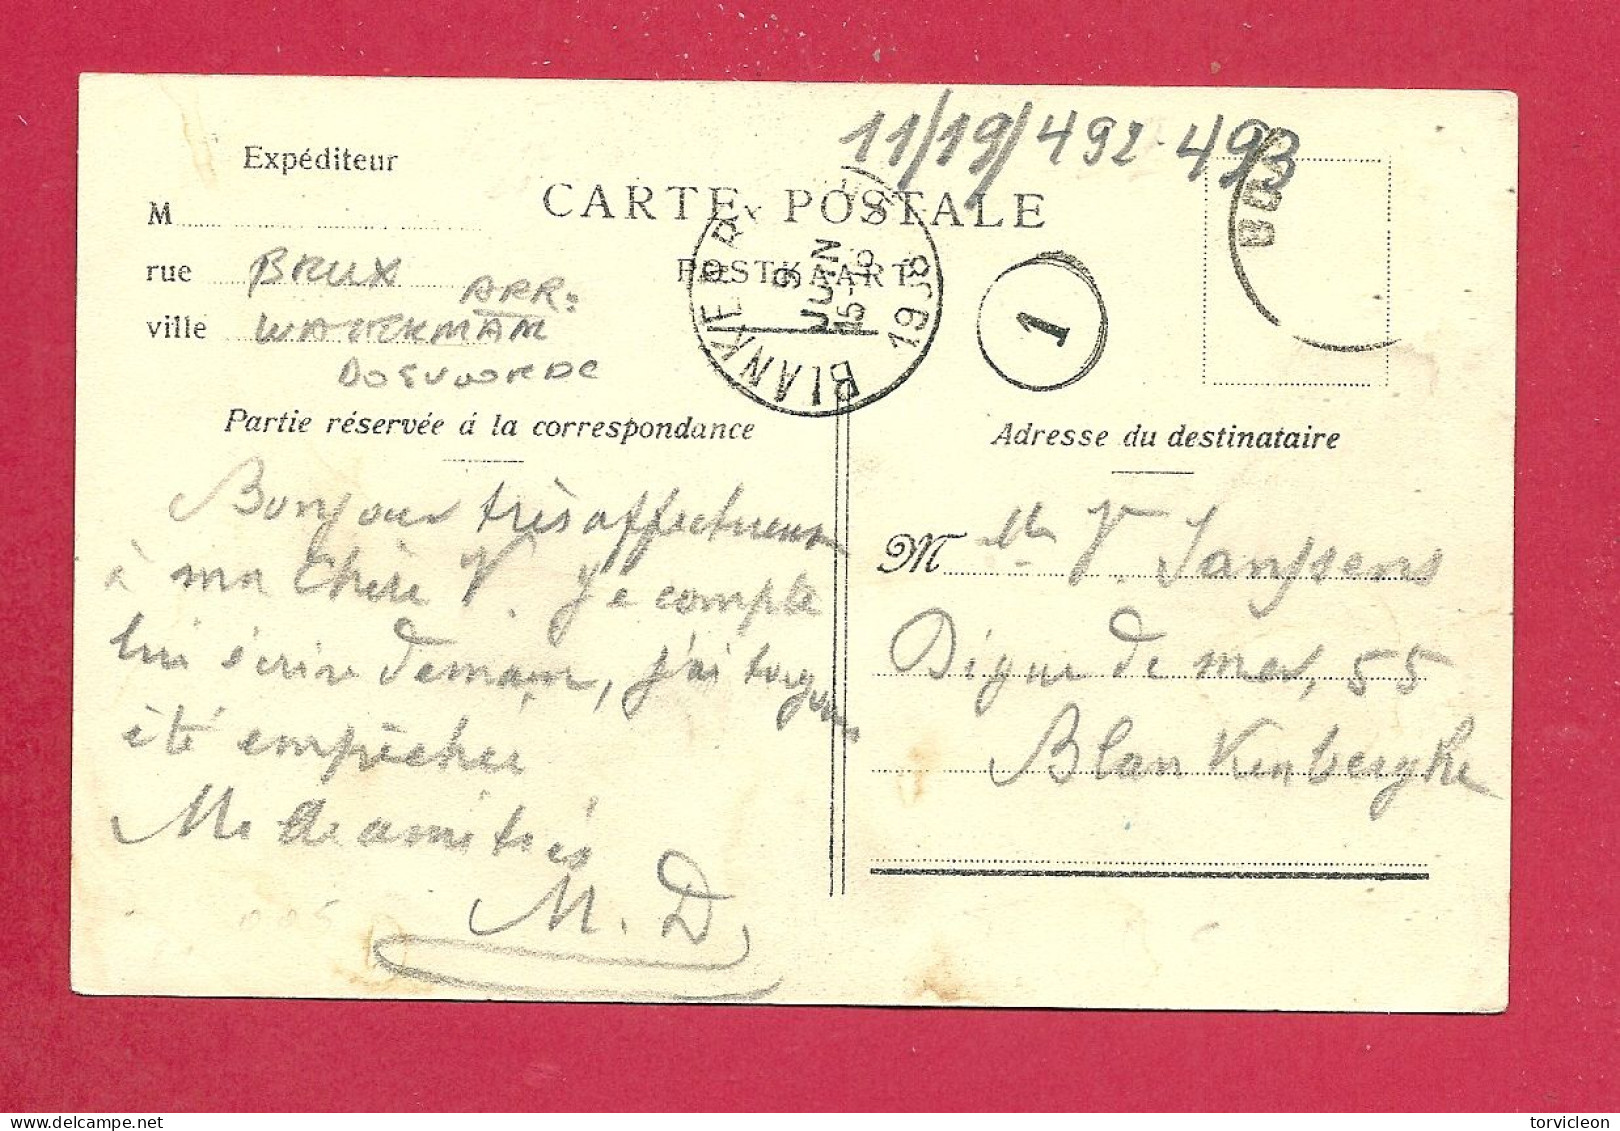 11/19/492-493
Expéditeur
CARTE POSTALE
M
POSTKAART
rue BRUX
ARR:
ville WATERMAEL
Partie réservée à la correspondance
Adresse du destinataire
BLANKENBERGE
9
JUIN
15-16
1938
1
Bonjour très affectueux
à ma Chère V. Je compte
lui écrire demain, j'ai toujours
été empêchée
Mille amitiés
M. D.
Mlle V. Janssens
Digue de mer, 55
Blankenberghe
torvicleon